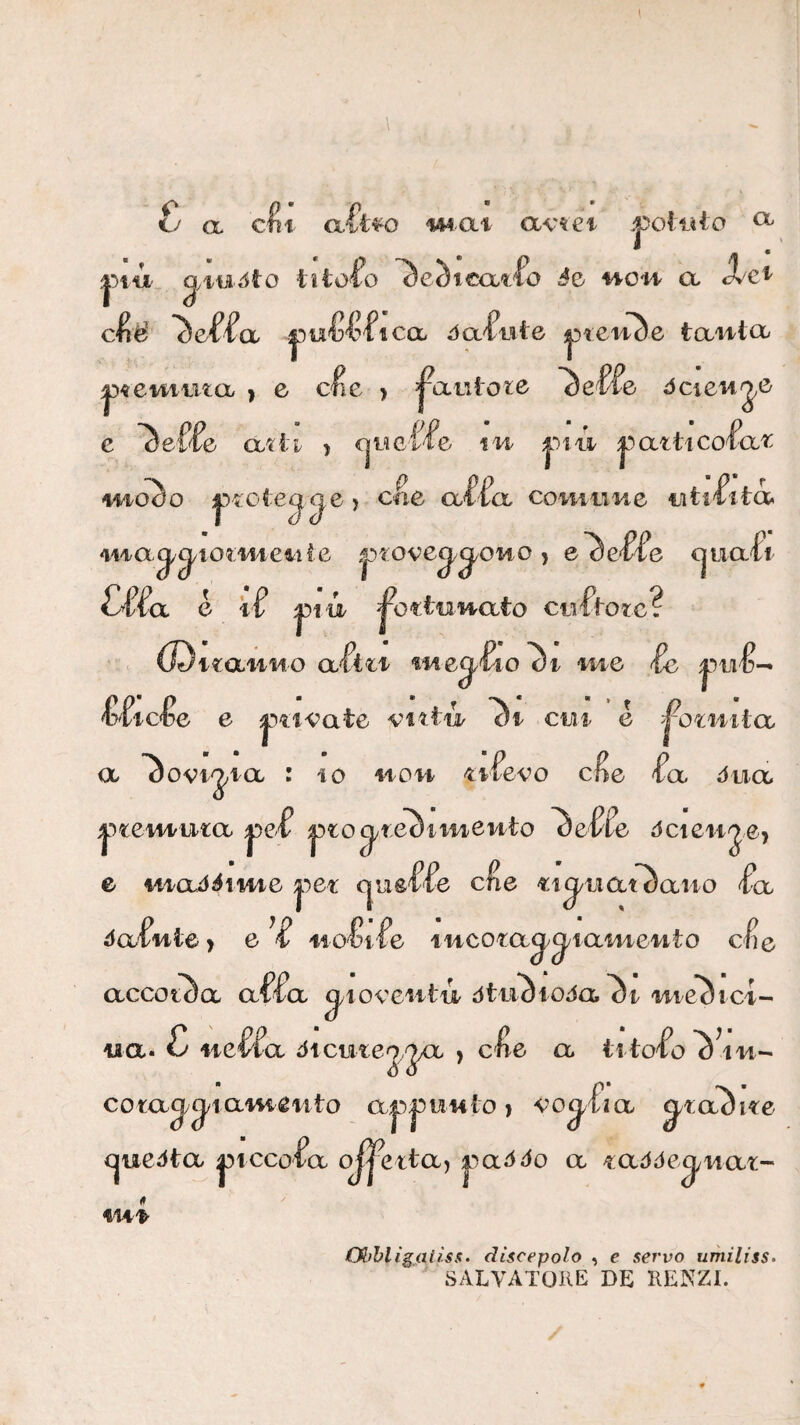 E a chi altro mai avrei potuto a
più giusto titolo dedicarlo se non a Lei
che della pubblica salute prende tanta
premura , e che , fautore delle scienze
e delle arti , quelle in più particolar
modo protegge , che alla comune utilità
maggiormente proveggono , e delle quali
Ella è il più fortunato cultore?
Diranno altri meglio di me le pub-
bliche e private virtù di cui è fornita
a dovizia : io non rilevo che la sua
premura pel progredimento delle scienze,
e massime per quelle che riguardano la
salute , e 'l nobile incoraggiamento che
accorda alla gioventù studiosa di medici-
na. E nella sicurezza , che a titolo d'in-
coraggiamento appunto , voglia gradire
questa piccola offerta, passo a rassegnar-
mi
Obbligatiss. discepolo , e servo umiliss.
SALVATORE DE RENZI.